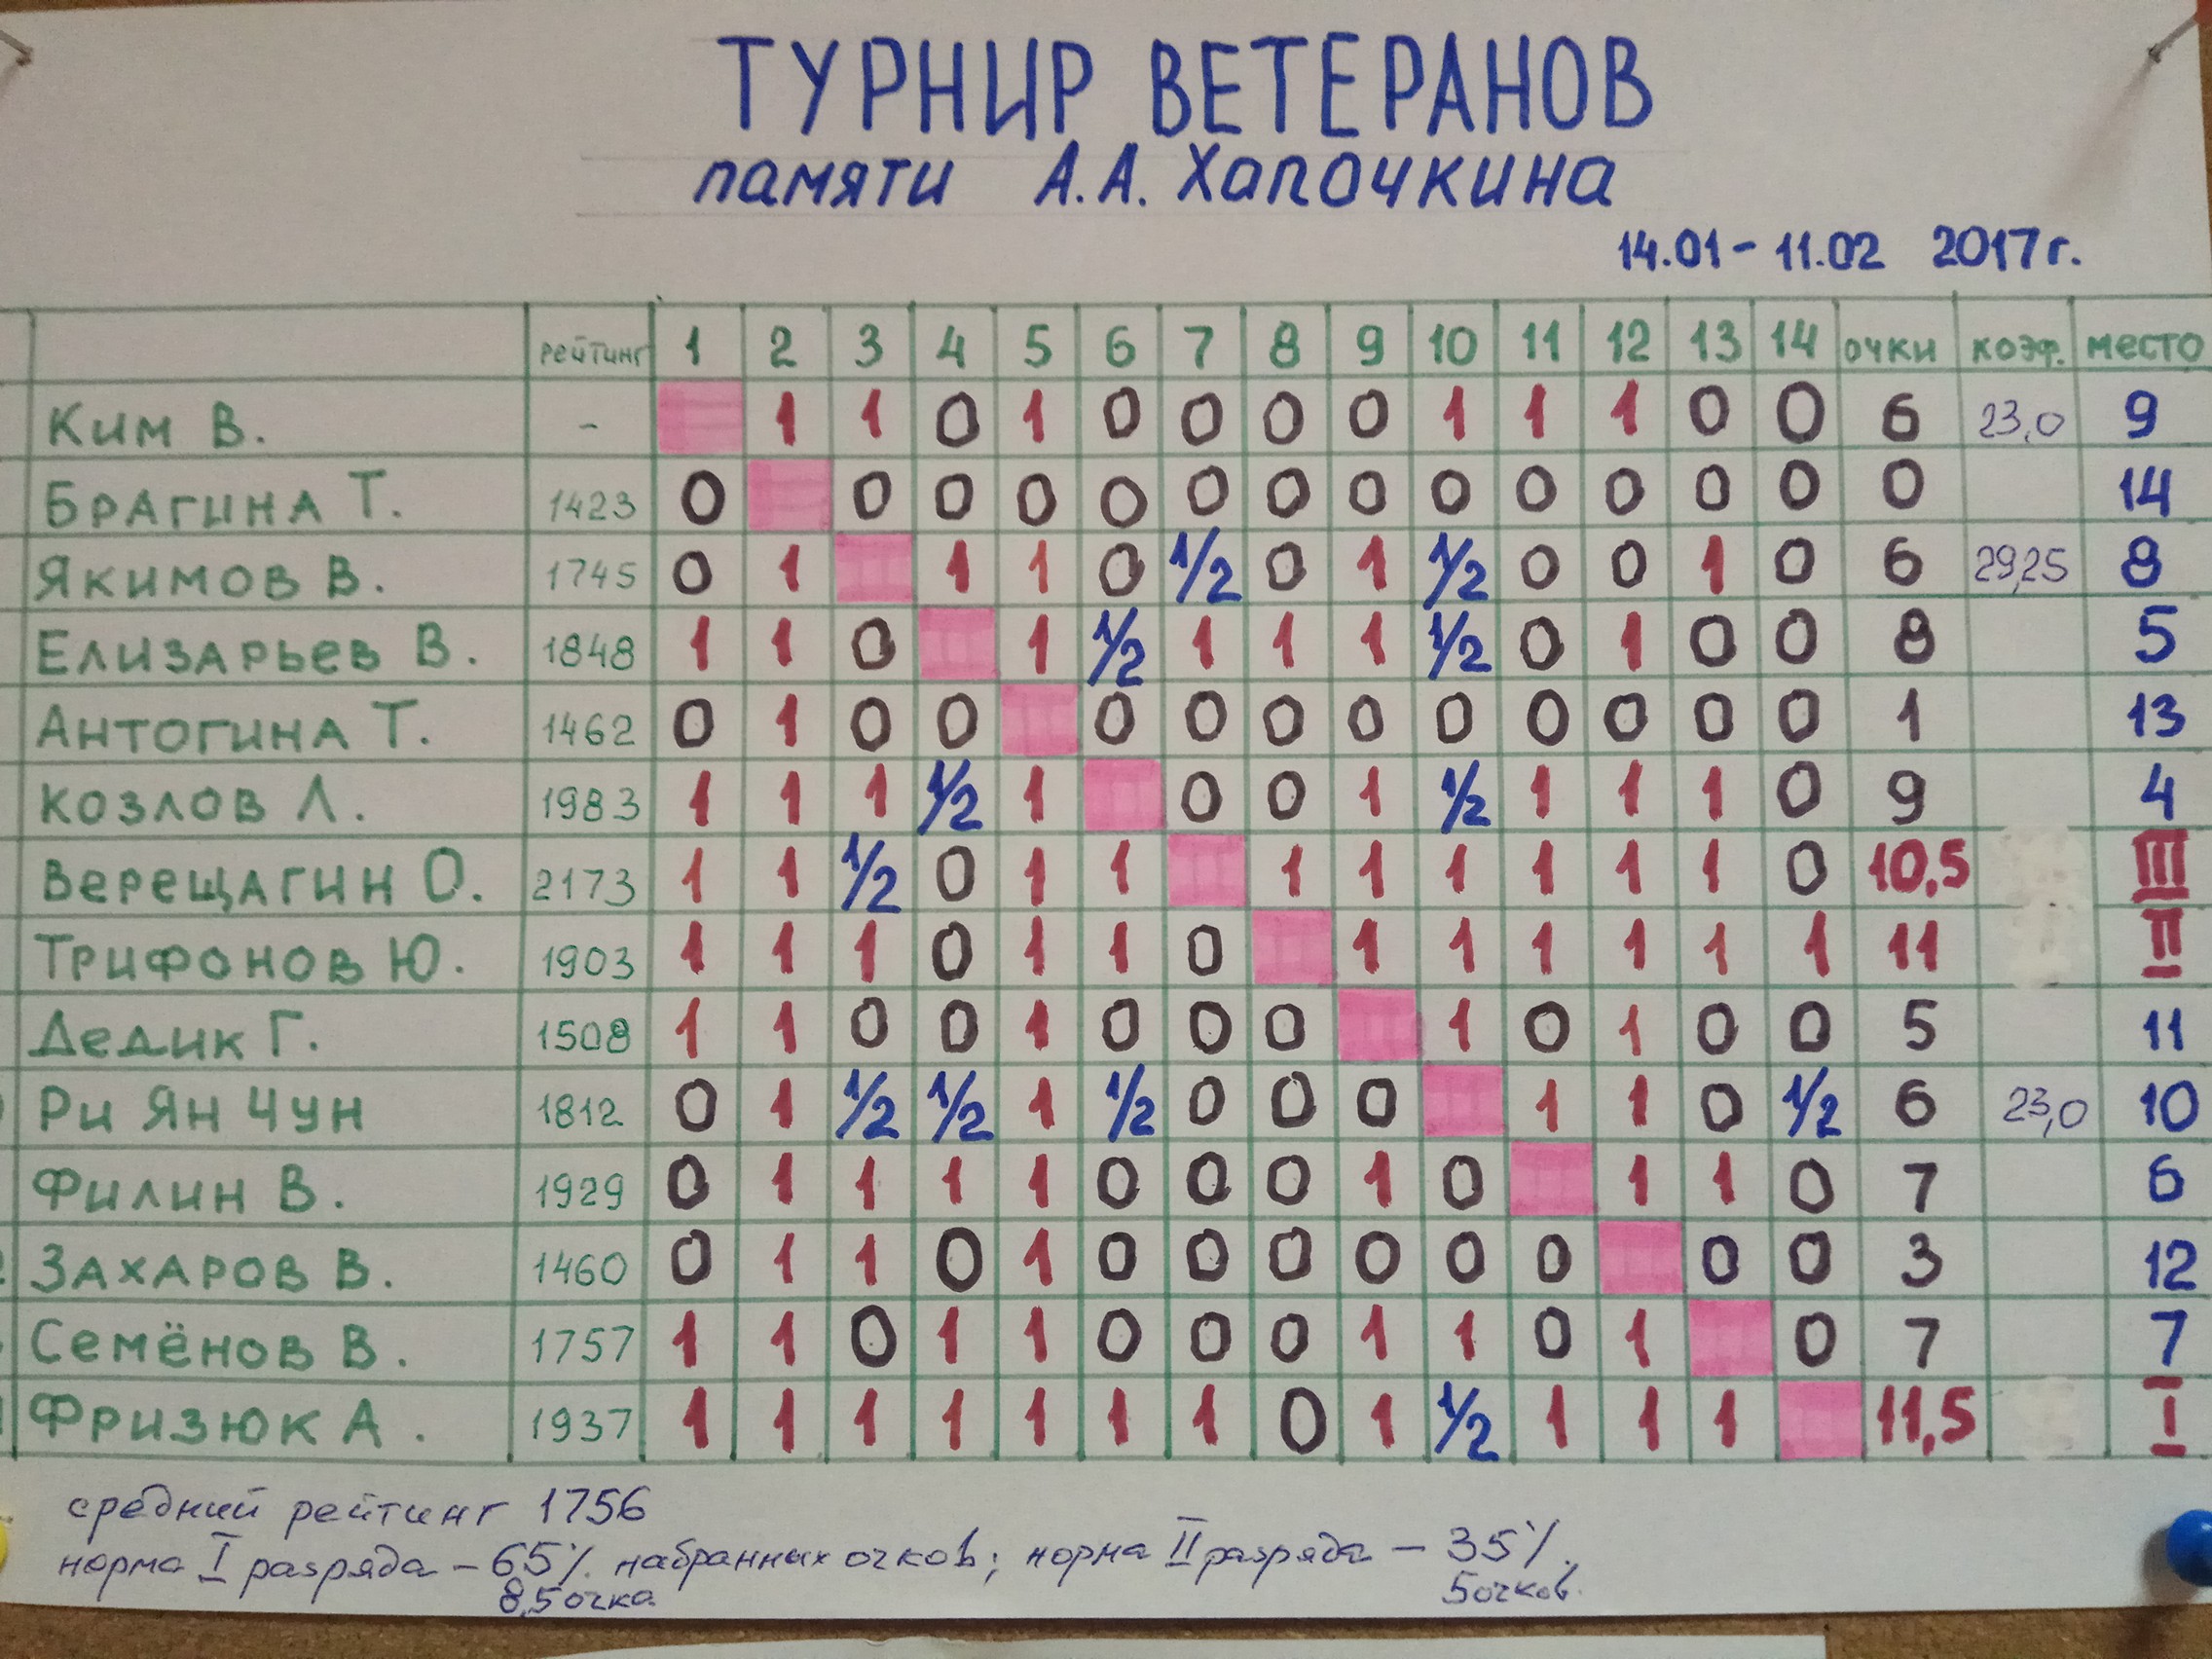 ТУРНИР ВЕТЕРАНОВ
памяти А.А. Хапочкина
14.01 - 11.02 2017г.
рейтинг 1 2 3 4 5 6 7 8 9 10 11 12 13 14 очки коэф. место
Ким В. - 1 1 0 1 0 0 0 0 1 1 1 0 0 6 23,0 9
Брагина Т. 1423 0 0 0 0 0 0 0 0 0 0 0 0 0 0 14
Якимов В. 1745 0 1 1 1 0 1/2 0 1 1/2 0 0 1 0 6 29,25 8
Елизарьев В. 1848 1 1 0 1 1/2 1 1 1 1/2 0 1 0 0 8 5
Антогина Т. 1462 0 1 0 0 0 0 0 0 0 0 0 0 0 1 13
Козлов Л. 1983 1 1 1 1/2 1 0 0 1 1/2 1 1 1 0 9 4
Верещагин О. 2173 1 1 1/2 0 1 1 1 1 1 1 1 1 0 10,5 III
Трифонов Ю. 1903 1 1 1 0 1 1 0 1 1 1 1 1 1 11 II
Дедик Г. 1508 1 1 0 0 1 0 0 0 1 0 1 0 0 5 11
Ри Ян Чун 1812 0 1 1/2 1/2 1 1/2 0 0 0 1 1 0 1/2 6 23,0 10
Филин В. 1929 0 1 1 1 1 0 0 0 1 0 1 1 0 7 6
Захаров В. 1460 0 1 1 0 1 0 0 0 0 0 0 0 0 3 12
Семёнов В. 1757 1 1 0 1 1 0 0 0 1 1 0 1 0 7 7
Фризюк А. 1937 1 1 1 1 1 1 1 0 1 1/2 1 1 1 11,5 I
средний рейтинг 1756
норма I разряда - 65% набранных очков; норма II разряда - 35%.
8,5 очка 5 очков.